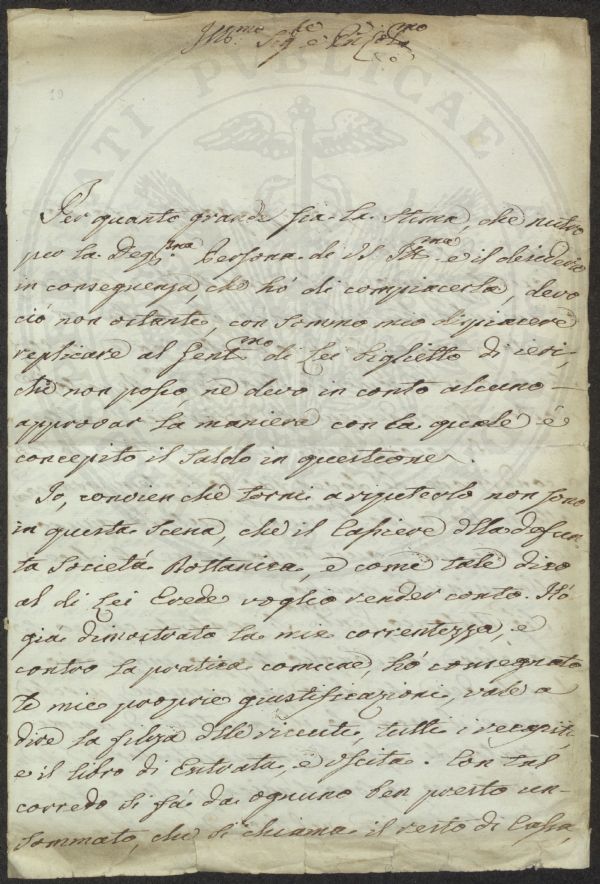 Ill.mo Sig.re e P.ne Col.mo
Per quanto grande sia la stima, che nutro
per la Deg.ma Persona di VS Ill.ma e il desiderio
in conseguenza, che hò di compiacerla, devo
ciò non ostante, con sommo mio dispiacere
replicare al Gent.mo di Lei biglietto di ieri,
che non posso, nè devo in conto alcuno
approvar la maniera con la quale è
concepito il saldo in questione.
Io, convien che torni a ripeterlo non sono
in questa scena, che il Cassiere della defun-
ta Società Bottanica, e come tale dico
al di Lei Erede voglio render conto. Hò
già dimostrato la mia correntezza, e
contro la pratica comune, hò consegnato
le mie proprie giustificazioni, vale a
dire la filza delle ricevute, tutti i recapiti,
e il libro di Entrata, e Uscita. Con tal
corredo si fà da ognuno ben presto un
sommato, che si chiama il resto di Cassa,